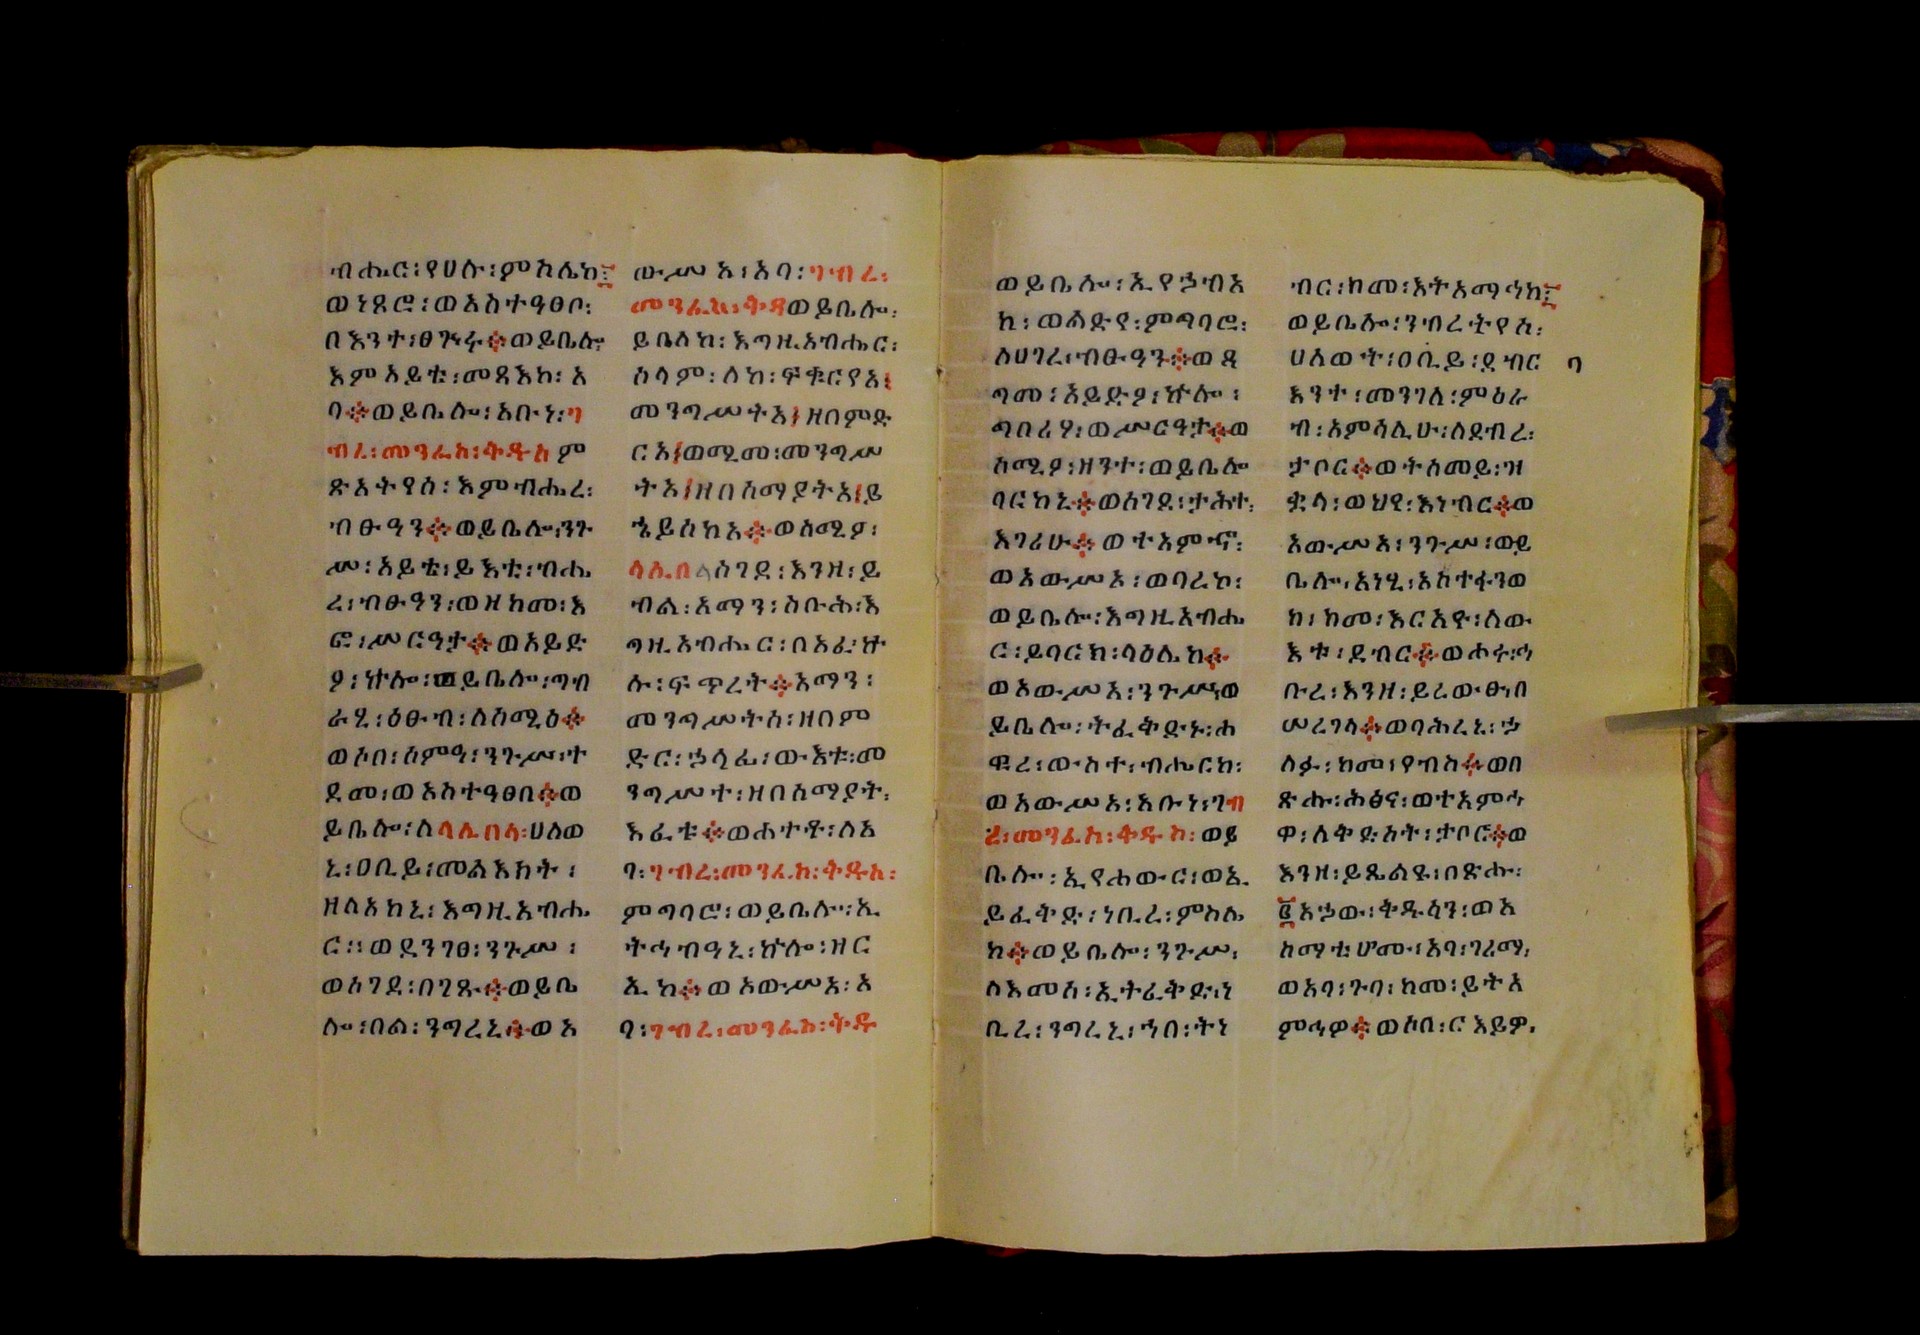 ብሔር፡የሀሉ፡ምስሌከ፤
ወነጸሮ፡ወአስተዓፀቦ፡
በእንተ፡ፀጕሩ፨ወይቤሎ፡
እምአይቴ፡መጻእከ፡አ
ባ፨ወይቤሎ፡አቡነ፡ገ
ብረ፡መንፈስ፡ቅዱስ ም
ጽአትየሰ፡እምብሔረ፡
ብፁዓን፨ወይቤሎ፡ንጉ
ሥ፡አይቴ፡ይእቲ፡ብሔ
ረ፡ብፁዓን፡ወዘከመ፡እ
ፎ፡ሥርዓታ፨ወአይድ
ዖ፡ኵሎ፡ወይቤሎ፡ግብ
ራሂ፡ዕፁብ፡ለሰሚዕ፨
ወሶበ፡ሰምዓ፡ንጉሥ፡ተ
ደመ፡ወአስተዓፀበ፨ወ
ይቤሎ፡ለላሊበላ፡ሀለወ
ኒ፡ዐቢይ፡መልእክት፡
ዘለአከኒ፡እግዚአብሔ
ር፡፡ወደንገፀ፡ንጉሥ፡
ወሰገደ፡በገጹ፨ወይቤ
ሎ፡በል፡ንግረኒ፨ወአ
ውሥአ፡አባ፡ገብረ፡
መንፈስ፡ቅዳወይቤሎ፡
ይቤለከ፡እግዚአብሔር፡
ሰላም፡ለከ፡ፍቁርየአ፤
መንግሥትአ፤ዘበምድ
ርአ፤ወሚመ፡መንግሥ
ትአ፤ዘበሰማያትአ፤ይ
ኄይስከአ፨ወሰሚዖ፡
ላሊበላሰገደ፡እንዘ፡ይ
ብል፡አማን፡ስቡሕ፡እ
ግዚአብሔር፡በአፈ፡ኵ
ሉ፡ፍጥረት፨አማን፡
መንግሥትስ፡ዘበም
ድር፡ኃላፊ፡ውእቱ፡መ
ንግሥተ፡ዘበሰማያት፡
እፈቱ፨ወሐተቶ፡ለአ
ባ፡ገብረ፡መንፈስ፡ቅዱስ፡
ምግባሮ፡ወይቤሎ፡ኢ
ትኅብዓኒ፡ኵሎ፡ዝር
ኢከ፨ወአውሥአ፡አ
ባ፡ገብረ፡መንፈስ፡ቅዱ
ወይቤሎ፡ኢየኃብአ
ከ፡ወአይድዖ፡ምግባሮ፡
ለሀገረ፡ብፁዓን፨ወዳ
ግመ፡አይድዖ፡ኵሎ፡
ግበሪሃ፡ወሥርዓታ፨ወ
ሰሚዖ፡ዘንተ፡ወይቤሎ
ባርከኒ፨ወሰገደ፡ታሕተ፡
እገሪሁ፨ወተአምኆ፡
ወአውሥአ፡ወባረከ፡
ወይቤሎ፡እግዚአብሔ
ር፡ይባርክ፡ላዕሌከ፨
ወአውሥአ፡ንጉሥ፡ወ
ይቤሎ፡ትፈቅድኑ፡ሐ
ዊረ፡ውስተ፡ብሔርከ፡
ወአውሥአ፡አቡነ፡ገብ
ረ፡መንፈስ፡ቅዱስ፡ወይ
ቤሎ፡ኢየሐውር፡ወኢ
ይፈትድ፡ነቢረ፡ምስሌ
ከ፨ወይቤሎ፡ንጉሥ፡
ለእመሰ፡ኢትፈቅድ፡ነ
ቢረ፡ንግረኒ፡ኀበ፡ትነ
ብር፡ከመ፡እትአማኅከ፤
ወይቤሎ፡ንብረትየሰ፡
ሀለወት፡ዐቢይ፡ደብር
ባ
እንተ፡መንገለ፡ምዕራ
ብ፡አምሳሊሁ፡ለደብረ፡
ታቦር፨ወትሰመይ፡ዝ
ቋላ፡ወህየ፡እነብር፨ወ
አውሥአ፡ንጉሥ፡ወይ
ቤሎ፡አነሂ፡አስተፋንወ
ከ፡ከመ፡እርአዮ፡ለው
እቱ፡ደብር፨ወሖሩ፡ኅ
ቡረ፡እንዘ፡ይረውፁ፡በ
ሠረገላ፨ወባሕረኒ፡ኃ
ለፉ፡ከመ፡የብስ፨ወበ
ጽሑ፡ሕፅና፡ወተአምኅ
ዋ፡ለቅድስት፡ታቦር፨ወ
እንዘ፡ይጼልዩ፡በጽሑ፡
፪አኃው፡ቅዱሳን፡ወአ
ስማቲሆሙ፡አባ፡ገሪማ፡
ወአባ፡ጉባ፡ከመ፡ይትአ
ምኅዎ፨ወሶበ፡ርእይዎ፡